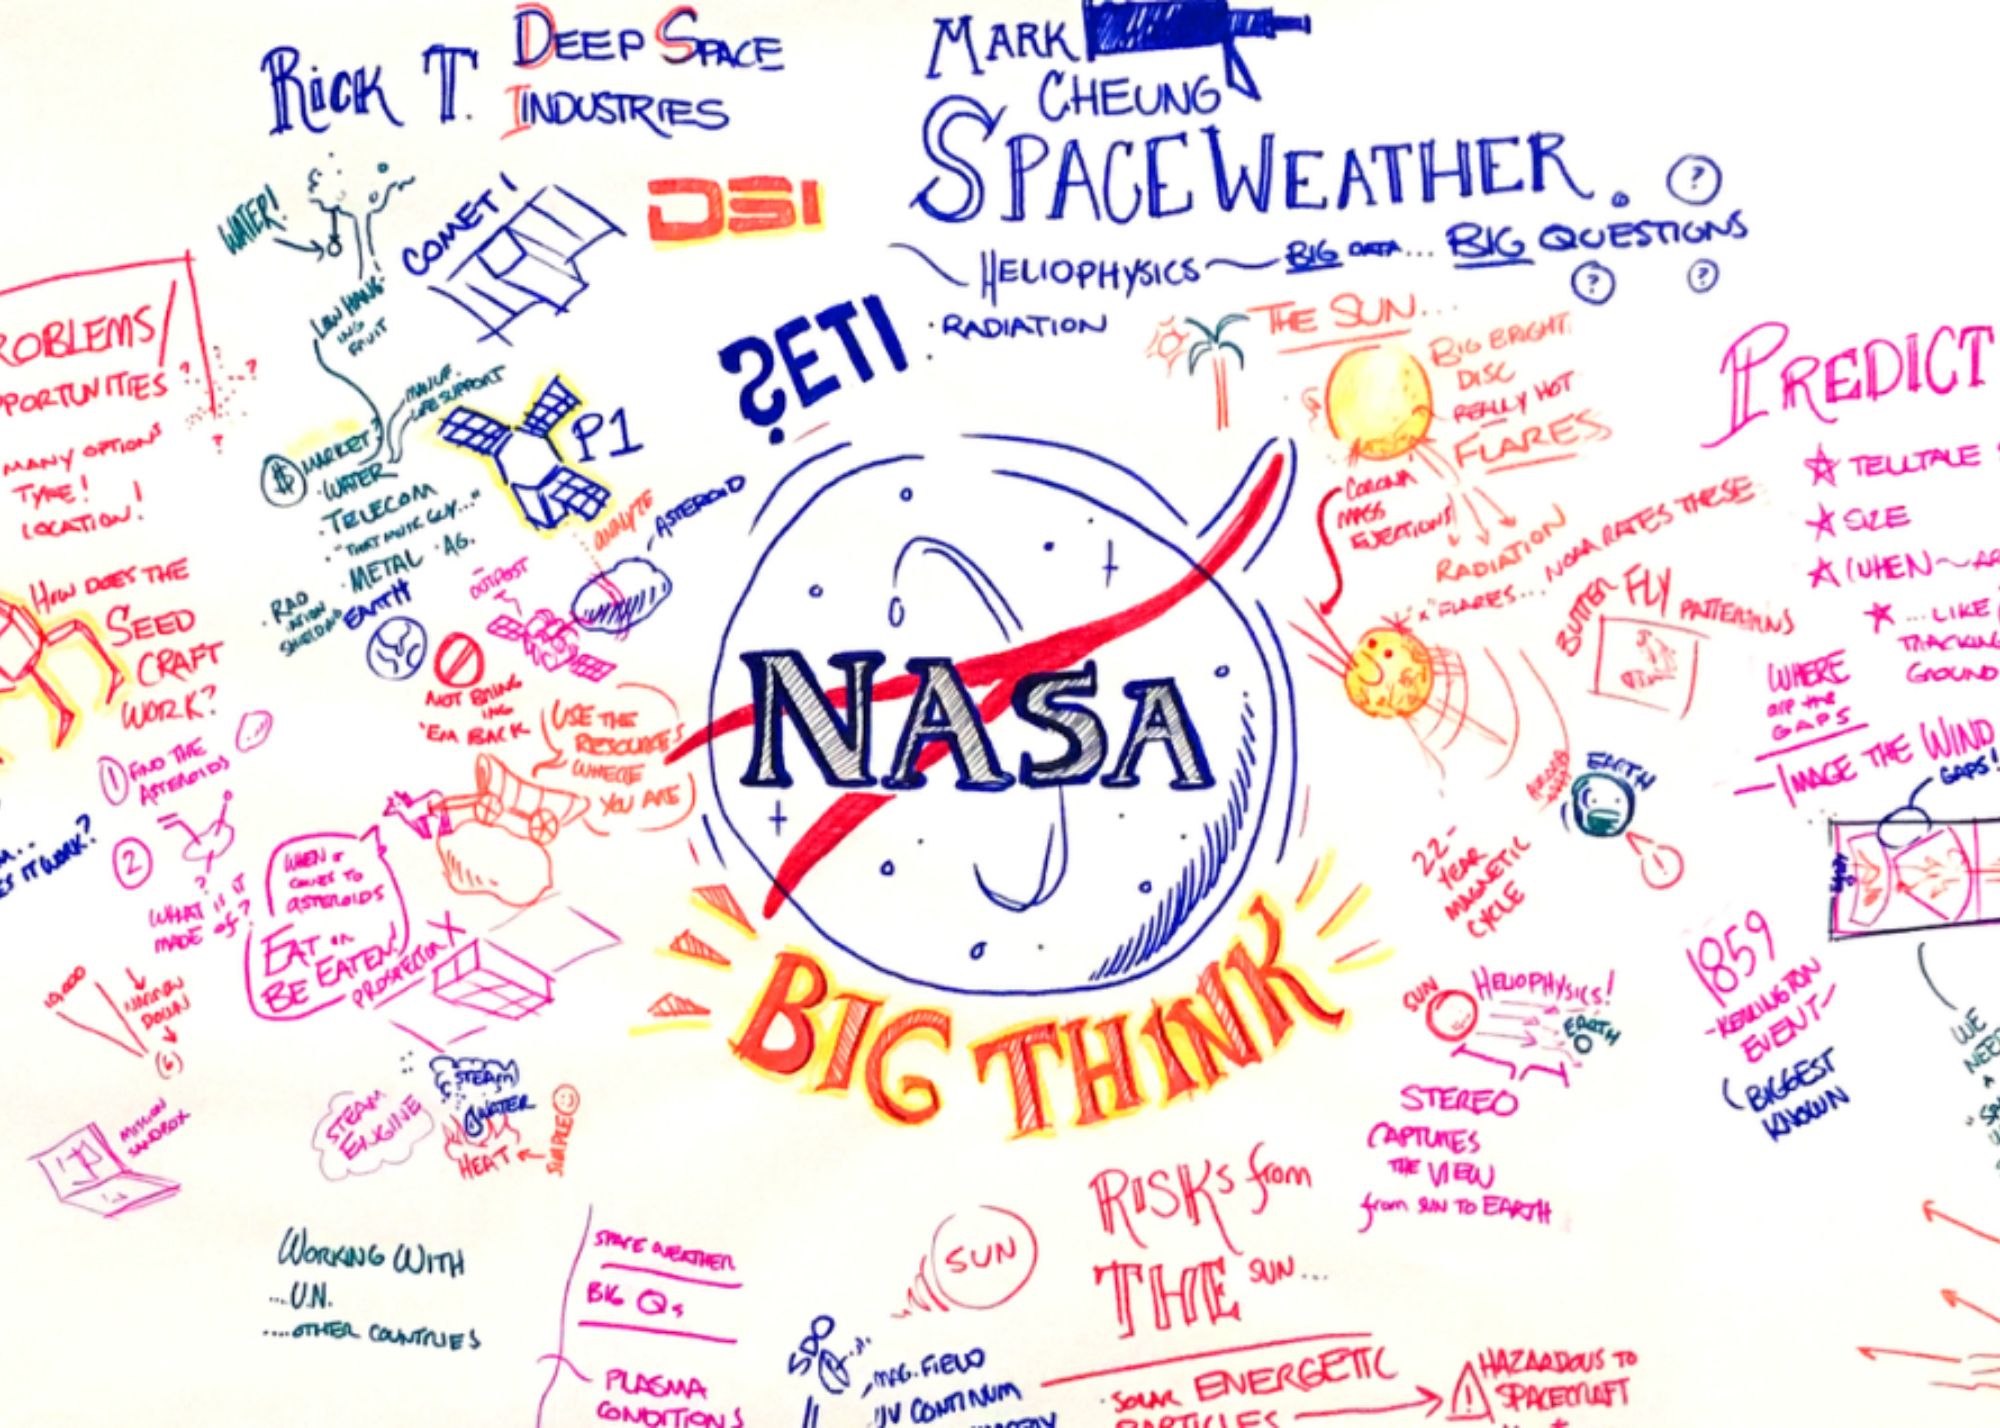 RICK T.
DEEP SPACE
INDUSTRIES
MARK
CHEUNG
SPACE WEATHER.
?
HELIOPHYSICS
BIG DATA... BIG QUESTIONS
?
?
· RADIATION
WATER!
COMET!
DSI
LOW HANG-
ING
FRUIT
?ETI
ROBLEMS/
PPORTUNITIES
? ? ?
MANY OPTIONS
TYPE!
LOCATION!
MANUF.
LIFE SUPPORT
$ MARKET?
· WATER
· TELECOM
· METAL · AG.
· RAD
IATION
SHIELDING
P1
ANALYTE
ASTEROID
OUTPOST
EARTH
NOT BRING
ING
'EM BACK
USE THE
RESOURCES
WHERE
YOU ARE
HOW DOES THE
SEED
CRAFT
WORK?
1 FIND THE
ASTEROIDS
2
?
WHAT IS IT
MADE OF?
ES IT WORK?
WHEN IT
COMES TO
ASTEROIDS
EAT OR
BE EATEN!
PROSPECTOR X
10,000
NARROW
DOWN
(6)
MISSION
SANDBOX
STEAM
ENGINE
STEAM
WATER
HEAT
SIMPLE
WORKING WITH
...U.N.
....OTHER COUNTRIES
NASA
BIG THINK
THE SUN...
BIG BRIGHT
DISC
REALLY HOT
FLARES
CORONA
MASS
EJECTIONS
RADIATION
"X" FLARES... NOAA RATES THESE
BUTTER FLY PATTERNS
EARTH
!
22-
YEAR
MAGNETIC
CYCLE
PREDICT
TELLTALE S
SIZE
WHEN ~ AR
...LIKE
TRACKING
GROUND
WHERE
ARE THE
GAPS
- IMAGE THE WIND
GAPS!
1859
EVENT-
(BIGGEST
KNOWN
WE
NEED
A
SUN
HELIOPHYSICS!
EARTH
STEREO
CAPTURES
THE VIEW
from SUN TO EARTH
SPACE WEATHER
BIG Qs
PLASMA
CONDITIONS
SUN
SDO
MAG. FIELD
UV CONTINUM
RISKS from
THE SUN...
· SOLAR ENERGETIC
PARTICLES
! HAZARDOUS TO
SPACECRAFT